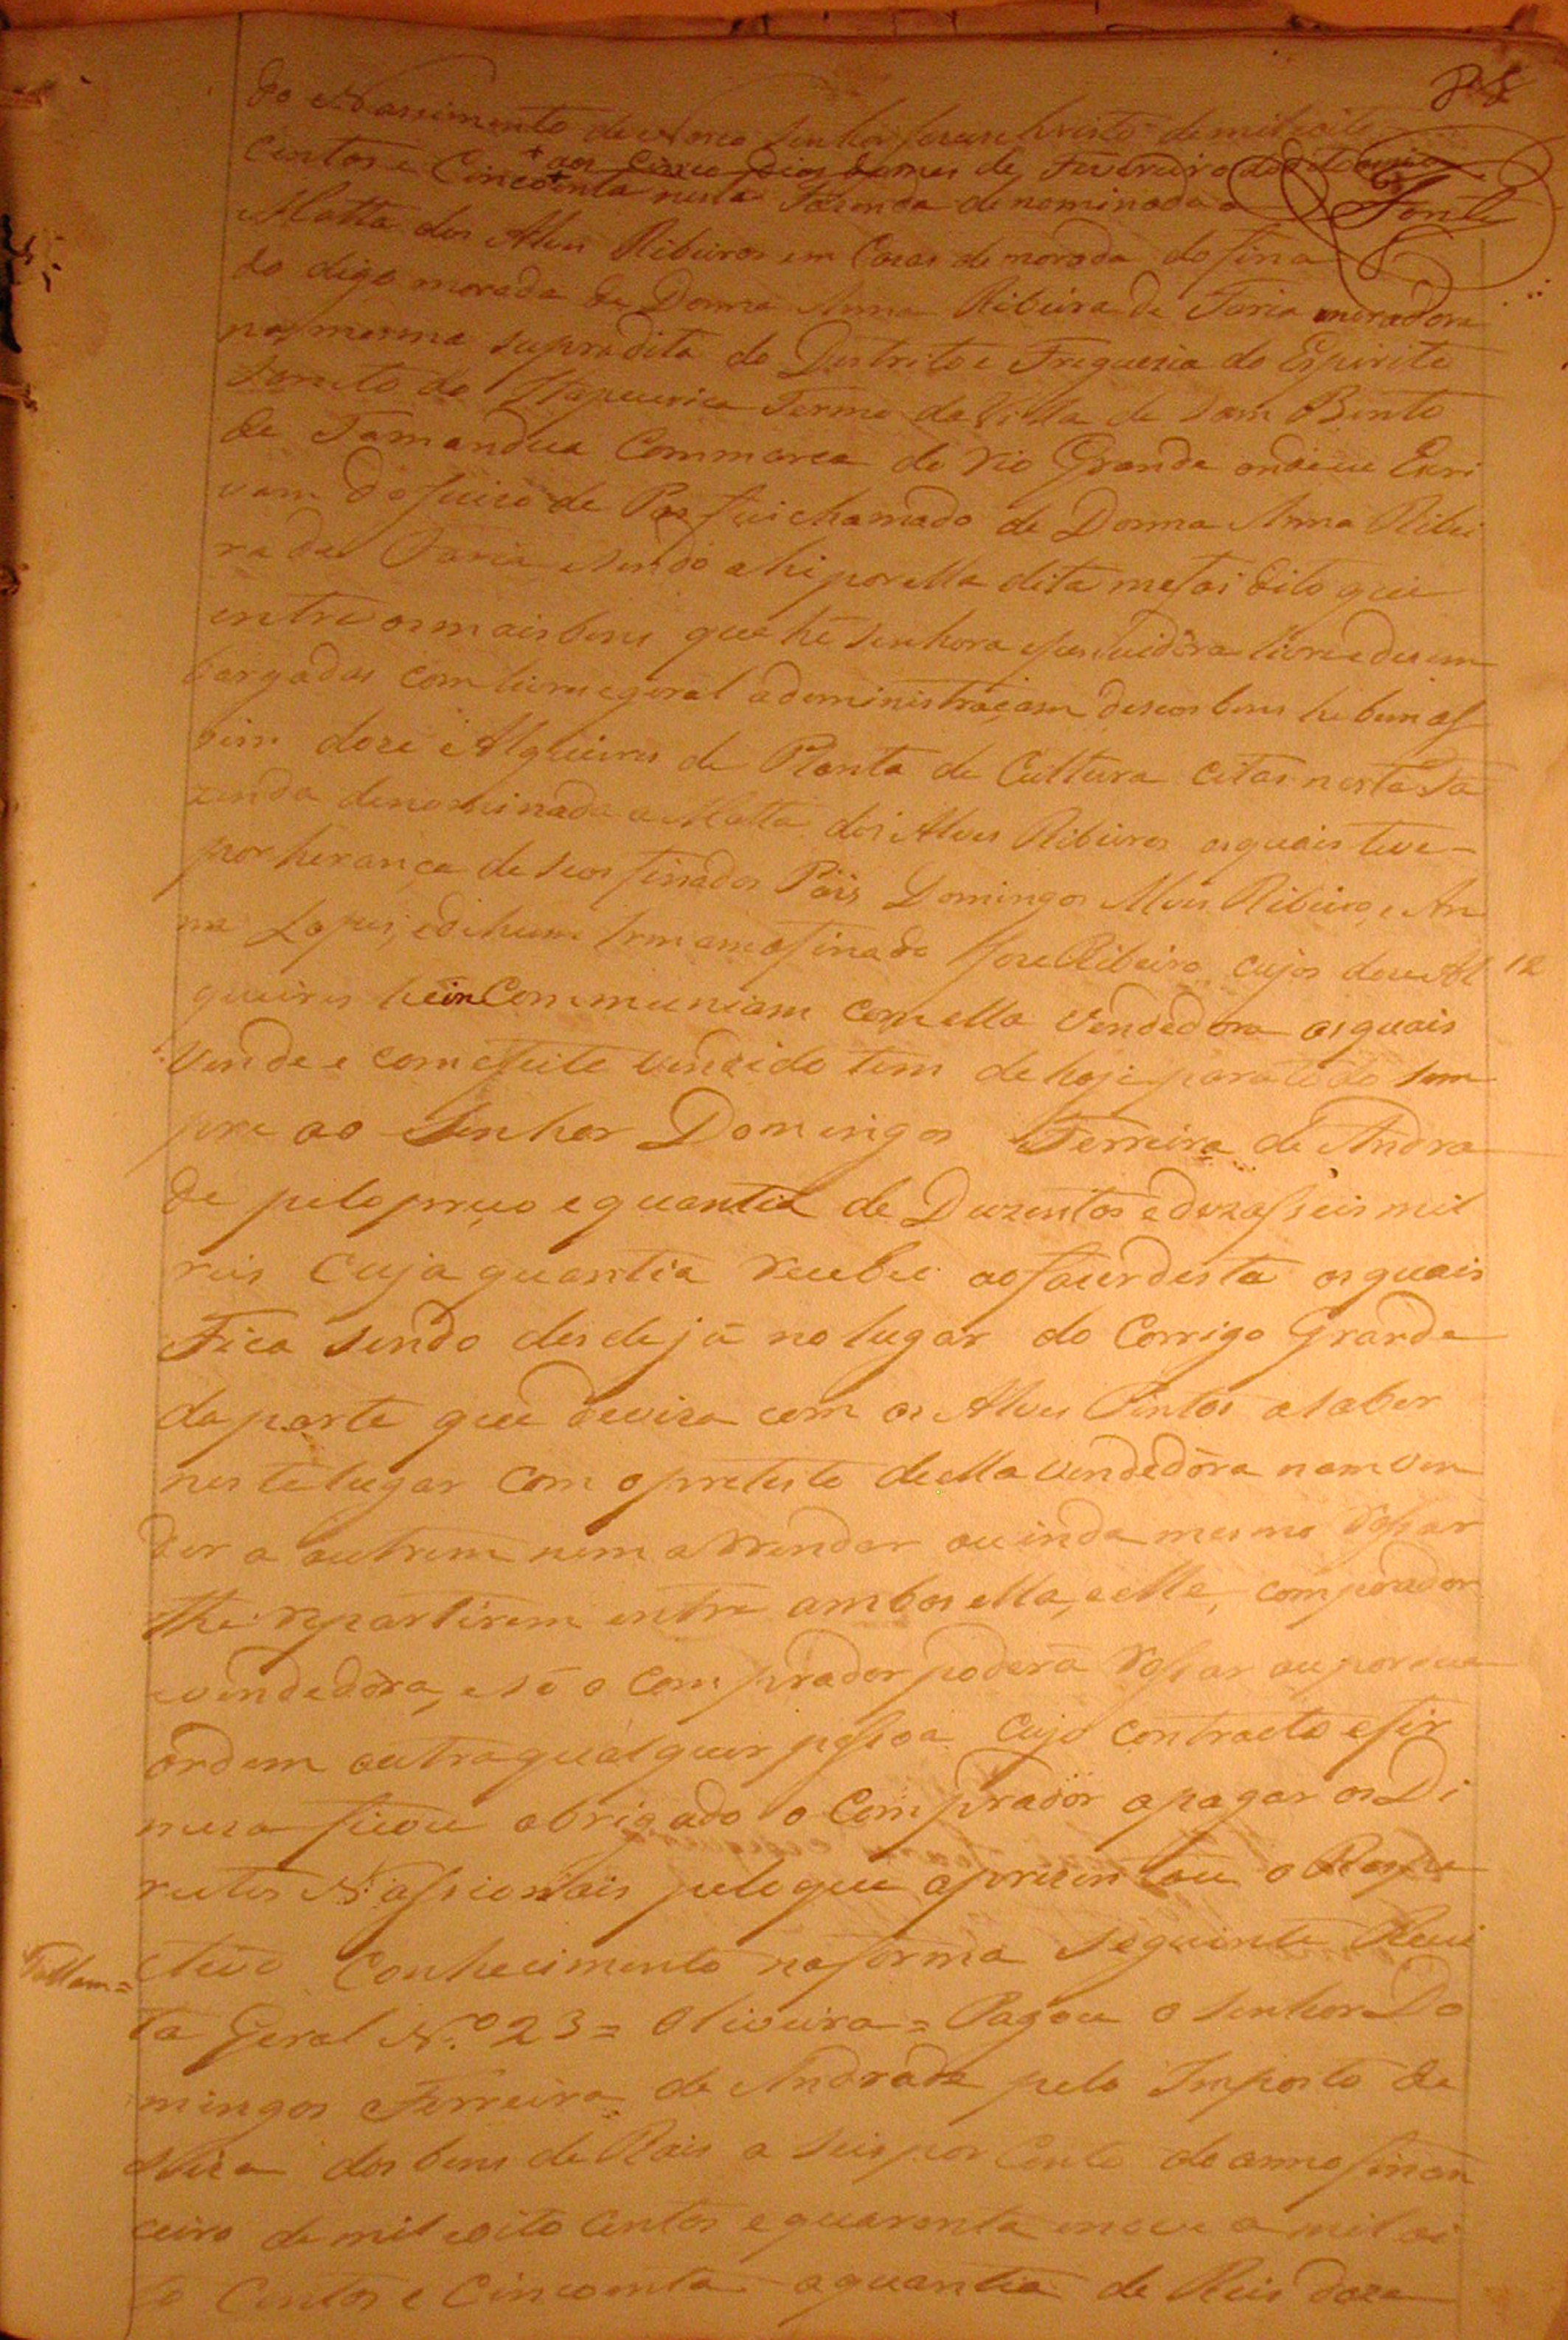 do Nassimento de Nosso Senhor Jesus Christo de mil oito
centos e Cincoenta nesta Fazenda denominada a
+ aos cinco dias do mes de Fevereiro do dito anno
Fonte
Matta dos Alves Ribeiros em Casas de morada do fina
do digo morada de Donna Anna Ribeira de Faria moradora
na mesma supradita do Destrito e Freguezia do Espirito
Santo do Itapecerica Termo da Villa de Sam Bento
de Tamandua Commarca do Rio Grande onde eu Escri
vam do Juizo de Pas fui chamado de Donna Anna Ribei
ra de Faria e sendo ahi por ella dita me foi dito que
entre os mais bens que hé senhora e possuidôra livre e desem
bargadas com livre e geraladeministraçam de seos bens he bem as
sim doze Alqueires de Planta de Cultura citas nesta Fa
zenda denominada a Matta dos Alves Ribeiros os quais teve
por herança de seos finados Päis Domingos Alves Ribeiro, e An
na Lopes, e de hum Irmam o finado Jose Ribeiro cujos doze Al
12
queires he in Communiam com ella Vendedora os quais
Vende e com efeito vendido tem de hoje para todo sem
pre ao Senhor Domingos Ferreira de Andra
de pelo preço e quantia de Duzentos e dezasseis mil
reis Cuja quantia recebeu ao fazer desta os quais
Fica sendo desde já no lugar do Corrigo Grande
da parte que deviza com os Alves Pintos a saber
neste lugar com o preteito de ella vendedôra nam ven
der a outrem nem arrendar ou inda mesmo Rossar
the repartirem entre ambos ella, e elle, comprador
e vendedôra, e só o Comprador poderá Rossar ou por sua
ordem outra qualquer pessoa Cujo contracto e fir
meza ficou obrigado o Comprador a pagar os Di
reitos Nassionais pelo que aprizentou o Respe
ctivo Conhecimento na forma seguinte Recei
Tallam=
ta Geral N.º 23= Oliveira= Pagou o Senhor Do
mingos Ferreira de Andrade pelo Imposto de
Siza dos bens de Rais a seis por Cento do anno finan
ceiro de mil e oito Centos e quarenta e nove a mil oi
to Centos e Cincoenta a quantia de Reis doze